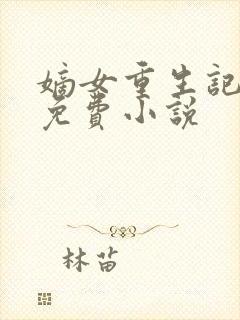 嫡女重生記
免費小説
林苗